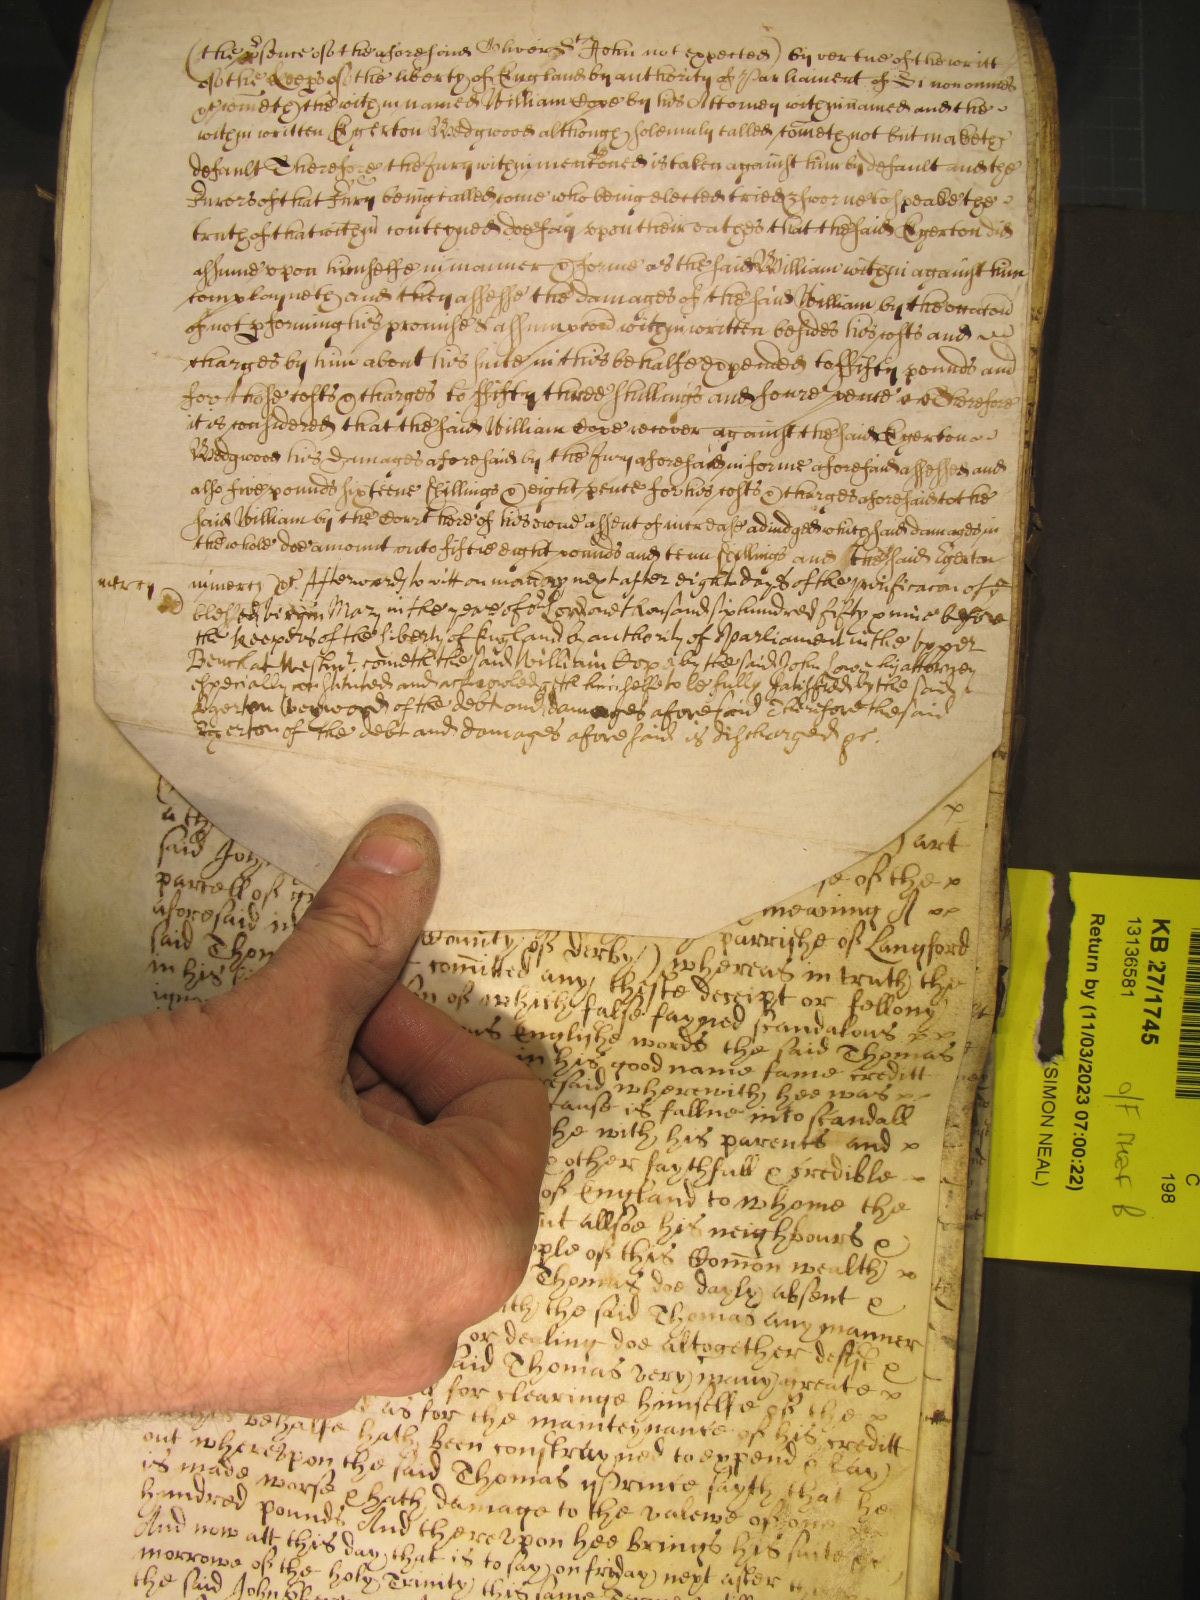 (the psence of the aforesaid Oliver St John not expected) by vertue of the writt
of the Keeps of the liberty of England by authority of Parliament of Si non omnes
cometh the within named William Cope by his Attorney within named and the
within written Egerton Wedgwood although solemnly called cometh not but maketh
default Therefore the Jury within mentoned is taken against him by default and the
Jurors of that Jury being called come who being elected tried & sworne to speake the
truth of that within conteyned doe say upon their oathes that the said Egerton did
assume upon himselfe in manner & forme as the said William within against him
complayneth and they assesse the damages of the said William by the occacon
of not pforming his promise & assumpcon within written besides his costs and
charges by him about his suite in this behalfe expended to fifty pounds and
for those costs & charges to fifty three shillings and foure pence Therefore
it is considered that the said William Cope recover against the said Egerton
Wedgwood his damages aforesaid by the Jury aforesaid in forme aforesaid assessed and
also five pounds sixteene shillings & eight pence for his costs & charges aforesaid to the
said William by the Court here of his owne assent of increase adiudged which said damages in
the whole doe amount unto fiftie eight pounds and tenn shillings and the said Egerton
mercy
in mercy &c Afterwards to witt on munday next after eight dayes of the purificacon of ye
blessed virgin Mary in the yeare of or Lord one thousand six hundred fifty & nine before
the Keepers of the liberty of England by authority of Parliament in the upper
Bench at Westmr. cometh the said William Cope by the said John Lowe his attorney
especially constituted and acknowledgeth himselfe to be fully satisfied by the said
Egerton of the debt and damages aforesaid Therefore the said
Egerton of the debt and damages aforesaid is discharged &c.
art
said John
se of the
parcell of
meaning
aforesaid in
parrishe of Langford
said Thom
County of Derby) whereas in truth the
in his
comitted any theste deceipt or fellony
of which false fayned scandalous
Englishe words the said Thomas
in his good name fame creditt
wherewith hee was
cause is fallne into scandall
he with his parents and
& other faythfull & credible
of England to whome the
allsoe his neighbours &
ple of this Comon wealth
Thomas doe dayly absent &
the said Thomas any manner
or dealing doe altogether desist &
said Thomas very many greate
for clearinge himselfe of the
as for the mainteynance of his creditt
behalfe hath been constrayned to expend & lay
out whereupon the said Thomas Prince sayth that he
is made worse & hath damage to the valewe of one
hundred pounds And thereupon hee brings his suite &c
And now att this day that is to say on friday next after
morrowe of the holy Trinity this same Terme
the said John
KB 27/1745
13136581
Return by (11/03/2023 07:00:22)
(SIMON NEAL)
C
198
o/f Map B